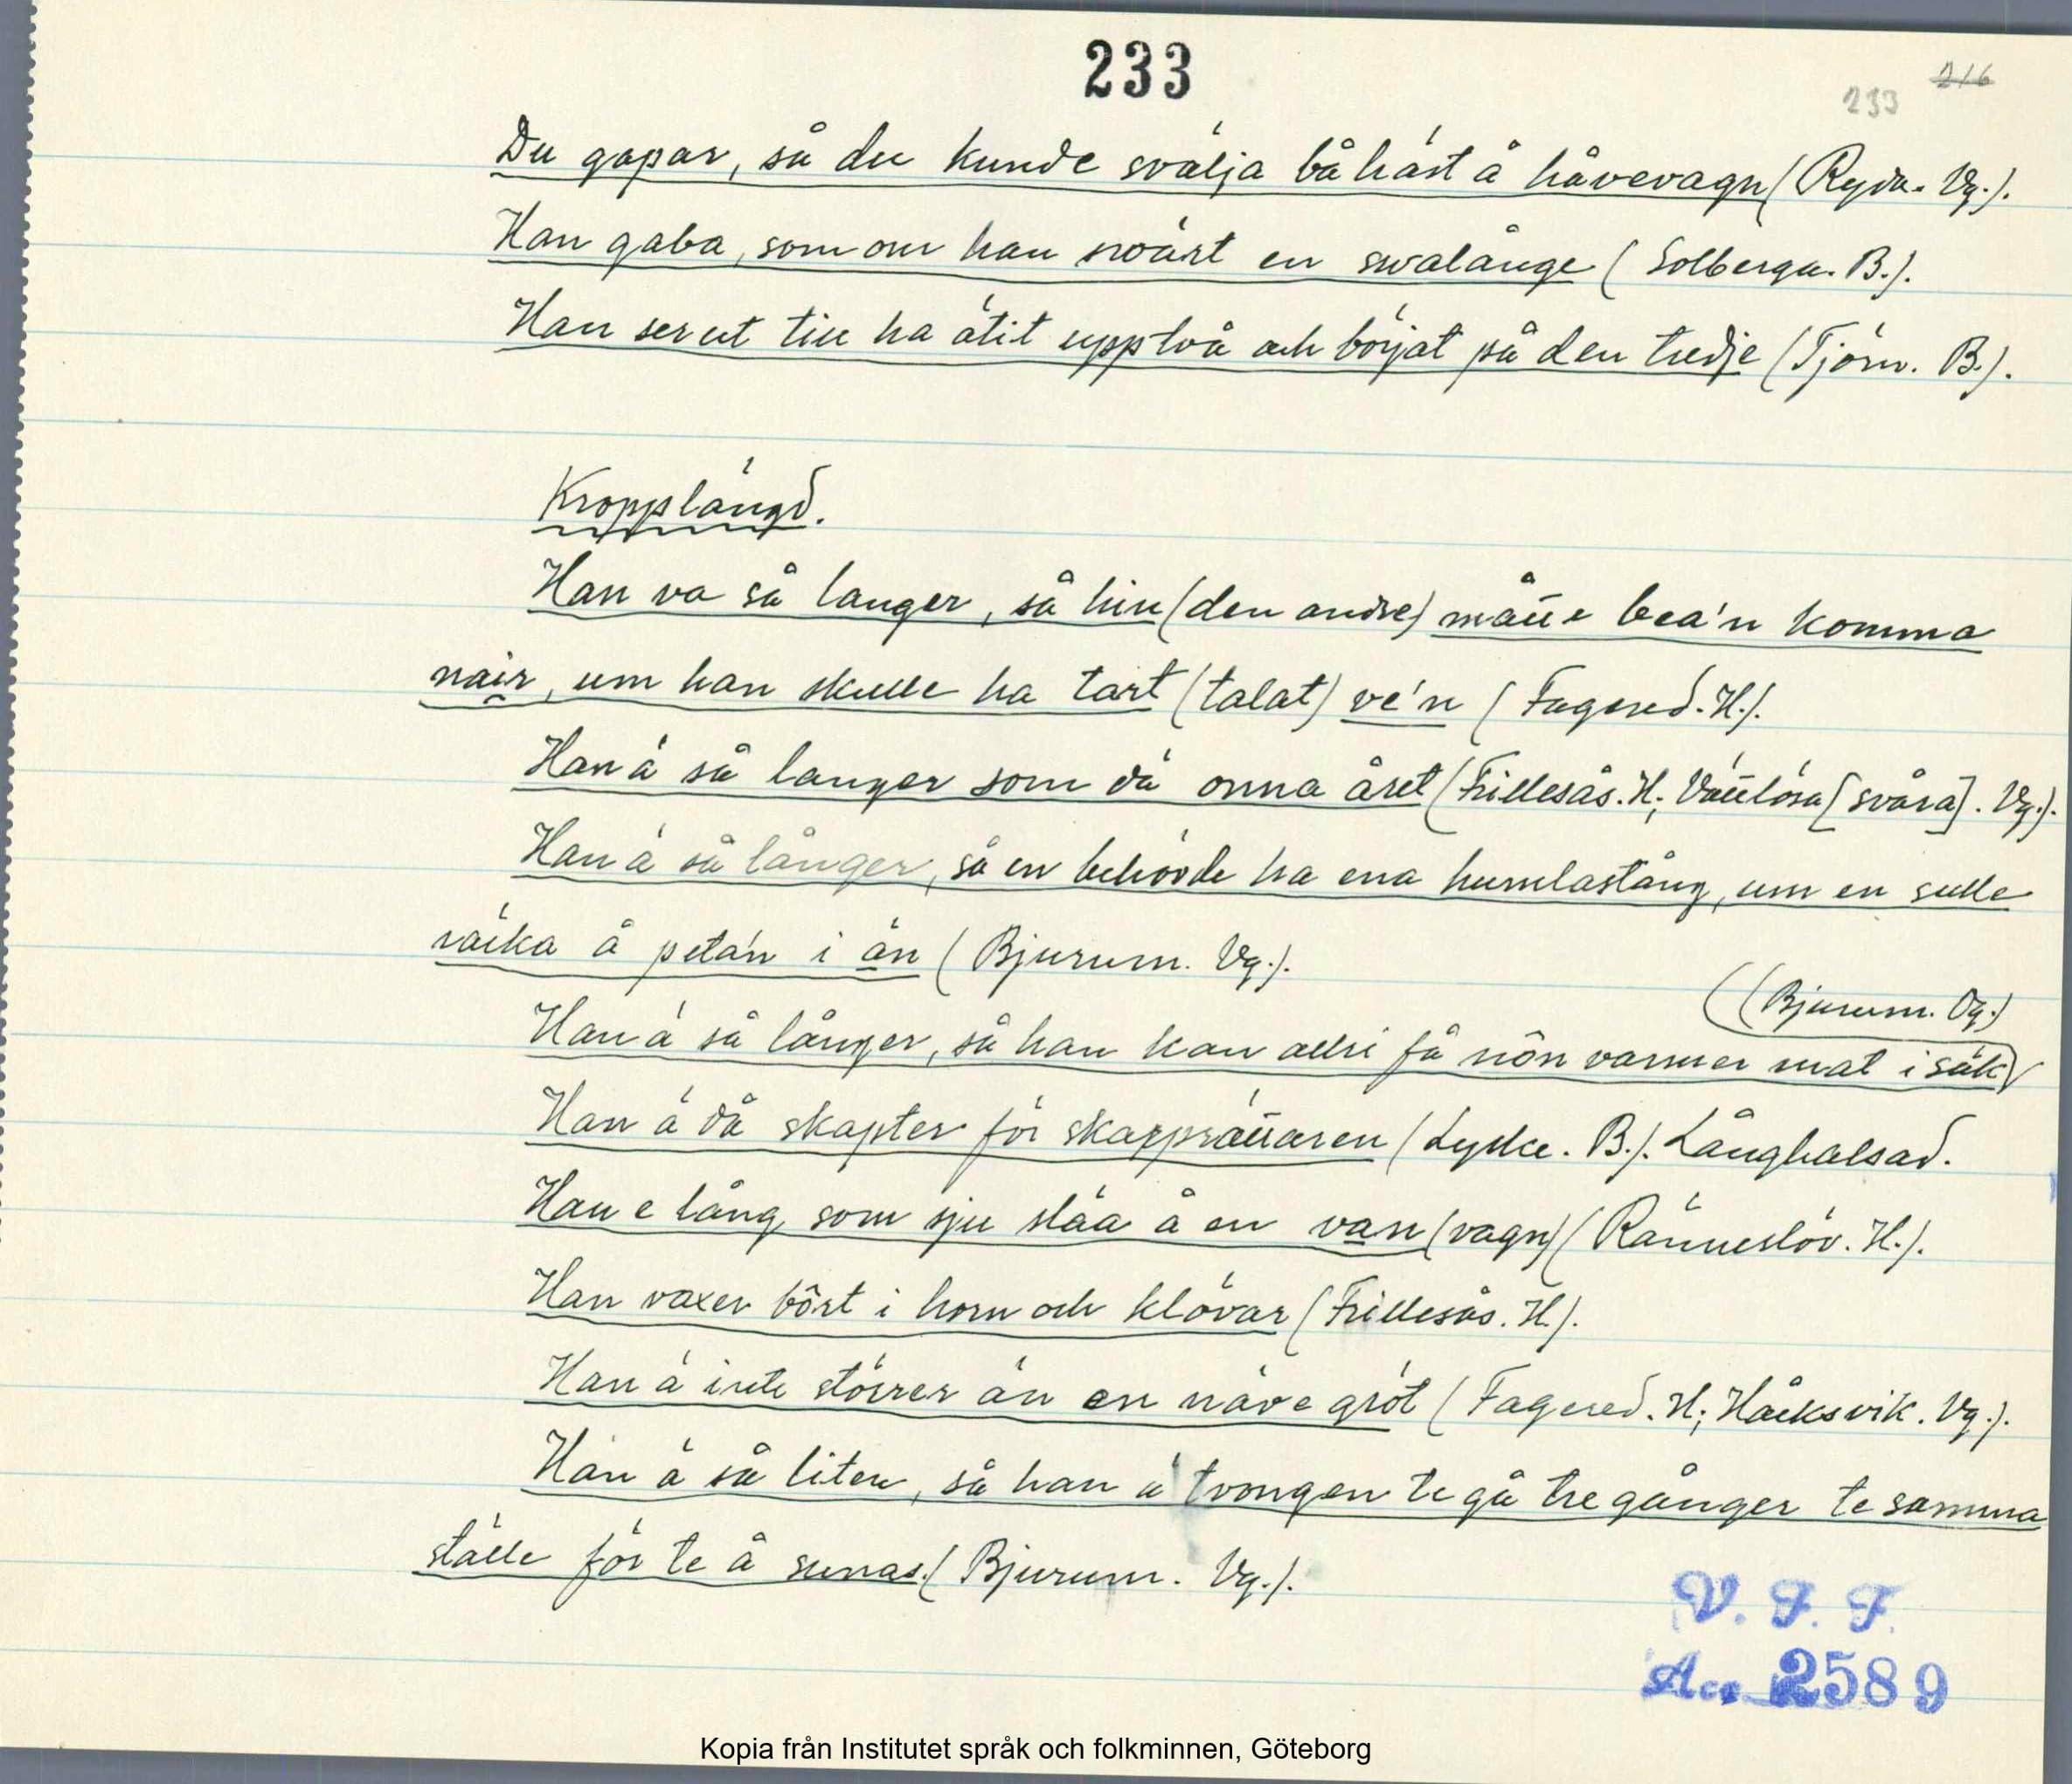 233
216
233
Du gapar, så du kunde svälja bå häst å håvevagn (Ryda. Vg.).
Han gaba, som om han svält en svalånge (Solberga. B.).
Han ser ut till ha ätit upp två och börjat på den tredje (Tjörn. B.).
Kropplängd.
Han va så langer, så hin (den andre) månne bea'n komma
nair, um han skulle ha tart (talat) ve'n (Fagered. H.).
Han ä så langer som dä onna året (Frillesås. H; Vättlösa [svåra]. Vg.).
Han ä så långer, så en behövde ha ena humlastång, um en sulle
räcka å peta'n i än (Bjurum. Vg.).
(Bjurum. Vg.)
Han ä så långer, så han kan alri få nôn varmer mat i säk
Han ä då skapter för skarprättaren (Lycke. B.). Långhalsad.
Han e lång som sju släa å en van (vagn) (Ränneslöv. H.).
Han växer bôrt i horn och klövar (Frillesås. H.).
Han ä inte störrer än en näve gröt (Fagered. H; Håcksvik. Vg.).
Han ä så liten, så han ä tvongen te gå tre gånger te samma
ställe för te å sunas. (Bjurum. Vg.).
V. F. F.
Acc. 2589
Kopia från Institutet språk och folkminnen, Göteborg